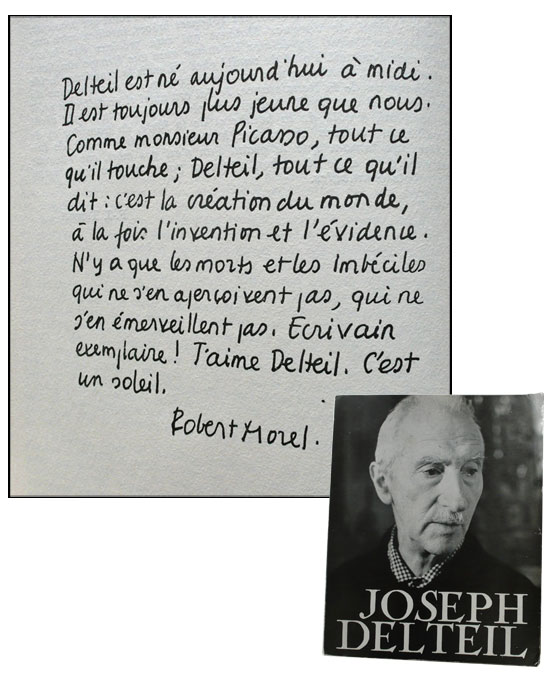 Delteil est né aujourd'hui à midi.
Il est toujours plus jeune que nous.
Comme monsieur Picasso, tout ce
qu'il touche ; Delteil, tout ce qu'il
dit : c'est la création du monde,
à la fois l'invention et l'évidence.
N'y a que les morts et les Imbéciles
qui ne s'en aperçoivent pas, qui ne
s'en émerveillent pas. Ecrivain
exemplaire ! J'aime Delteil. C'est
un soleil.
Robert Morel.
JOSEPH
DELTEIL